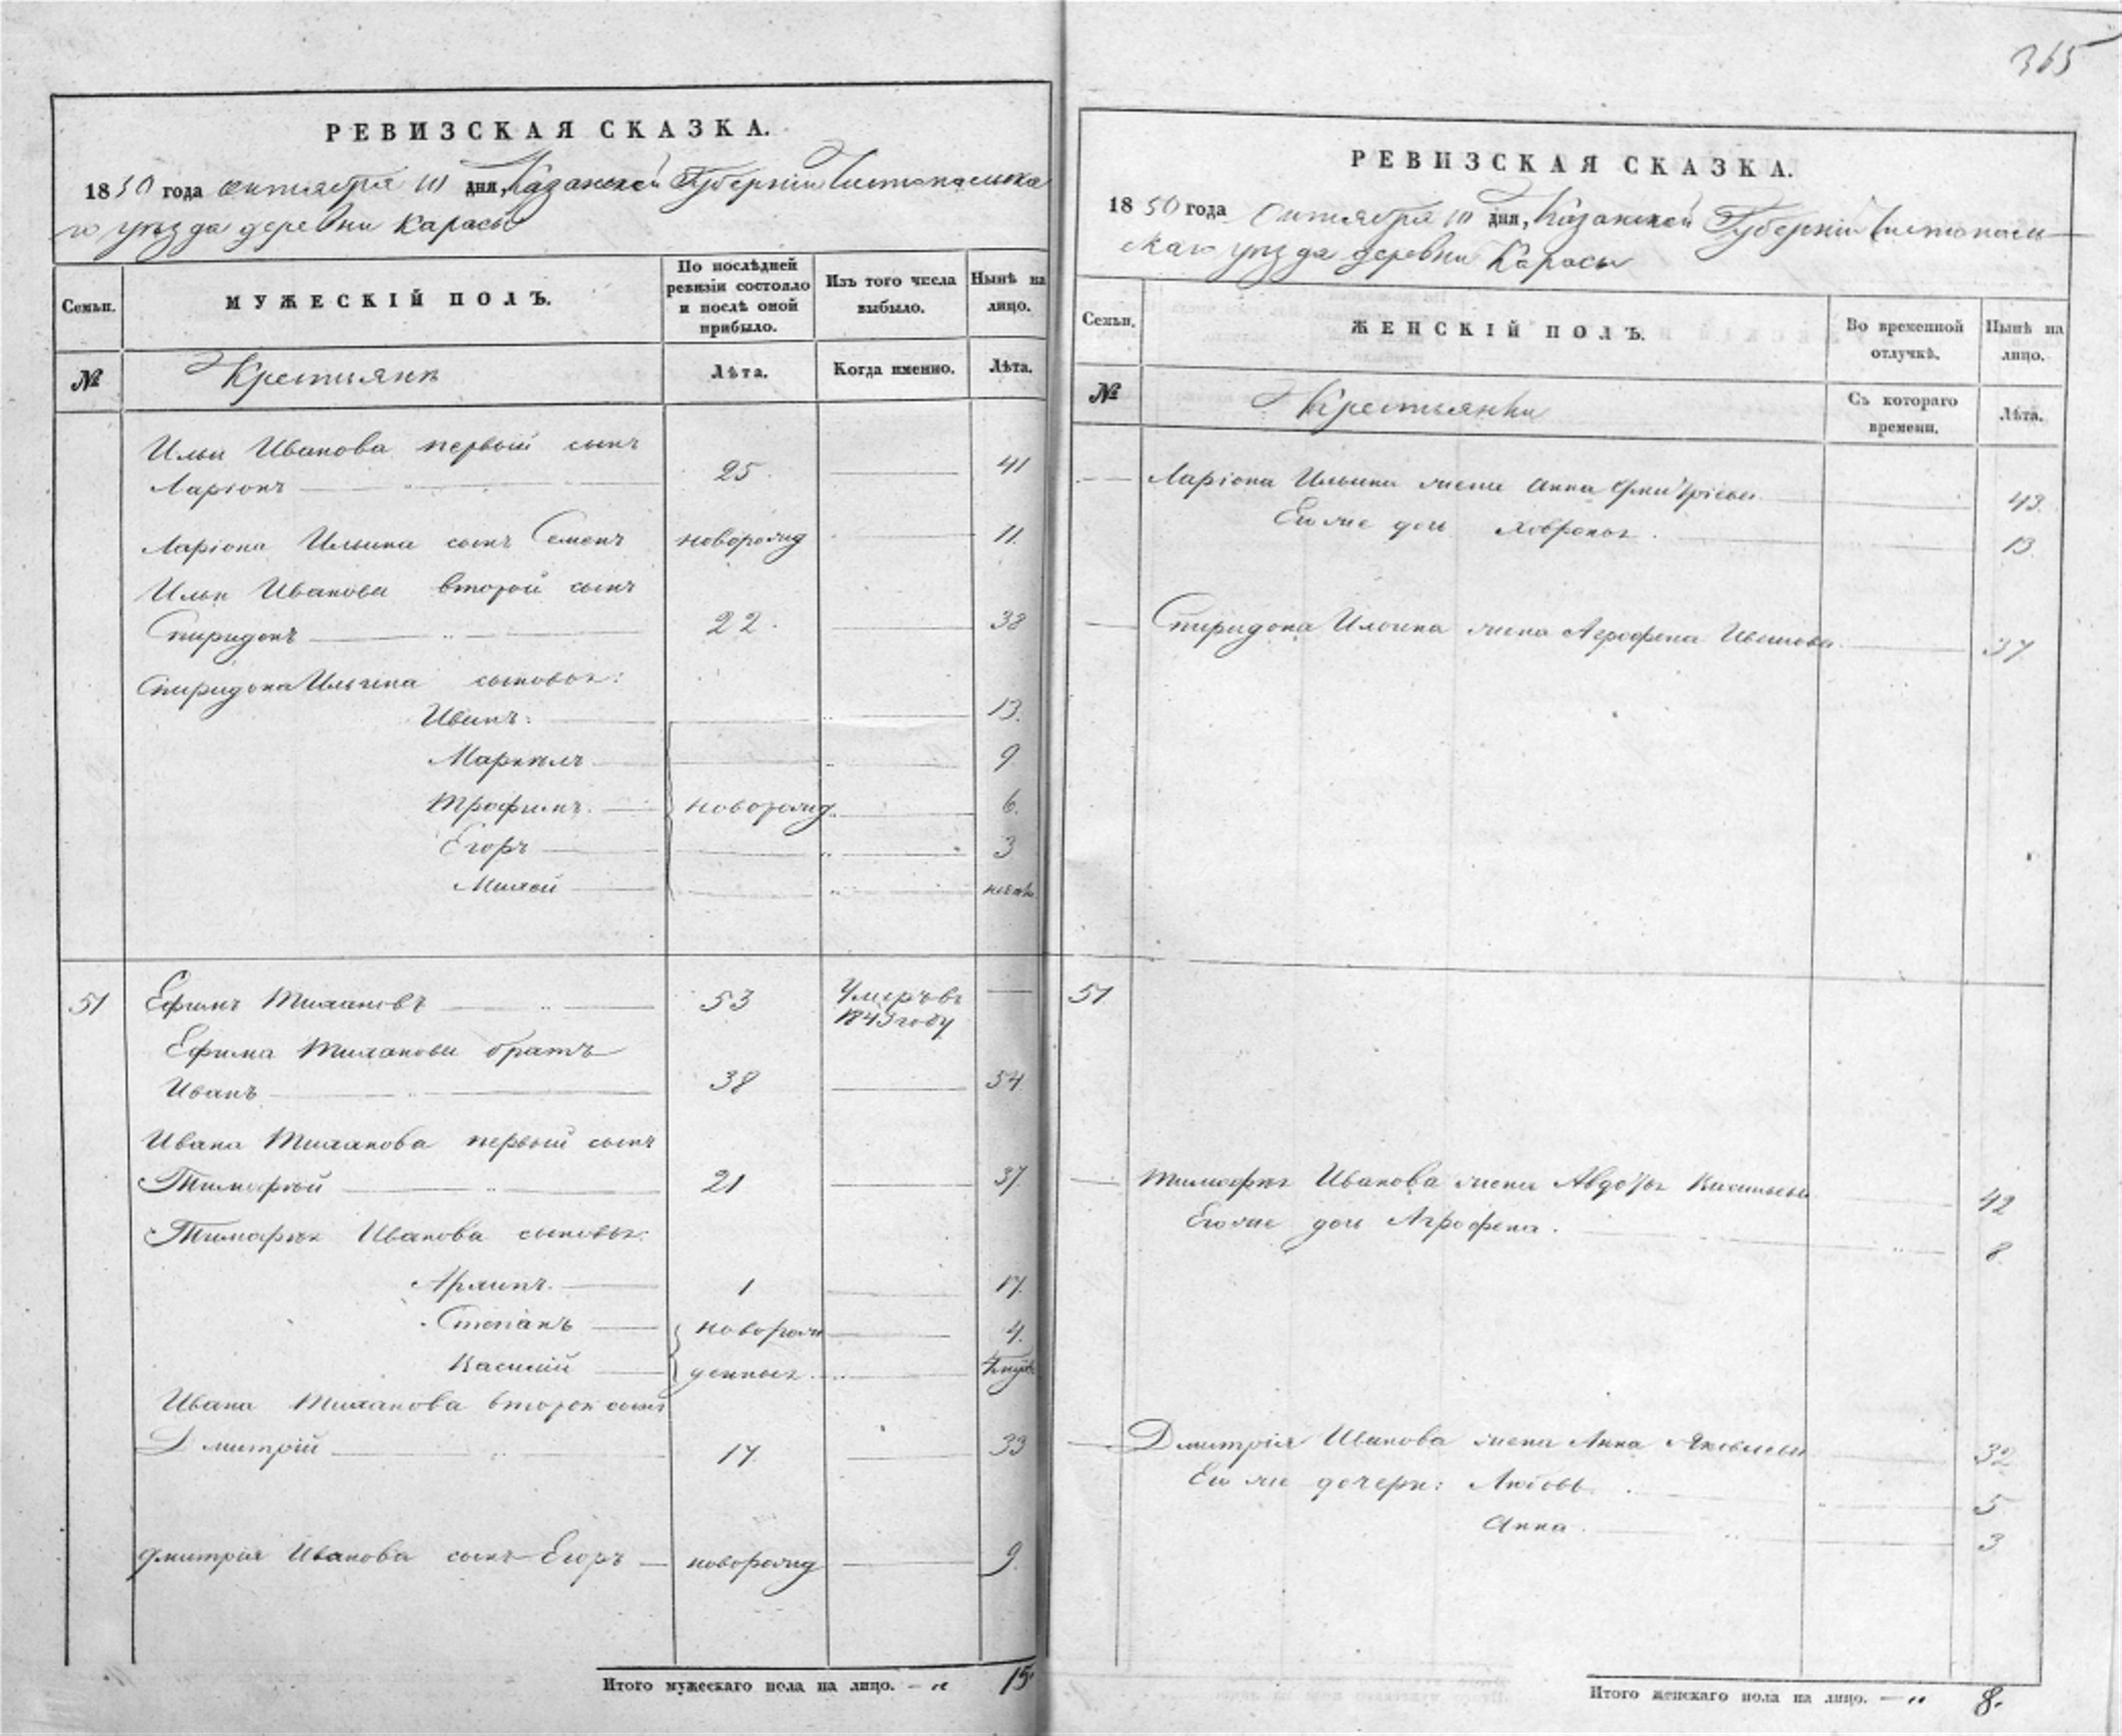 365
РЕВИЗСКАЯ СКАЗКА.
1850 года октября 10 дня, Казанской Губернии Чистопольска
го уѣзда деревни Карасы
Семьи.
МУЖЕСКІЙ ПОЛЪ.
По послѣдней
ревизіи состояло
и послѣ оной
прибыло.
Изъ того числа
выбыло.
Нынѣ на
лицо.
№
Крестьяне
Лѣта.
Когда именно.
Лѣта.
Ильи Иванова первый сынъ
Ларіонъ 25 41
Ларіона Ильина сынъ Семенъ новорожд 11.
Ильи Иванова второй сынъ
Спиридонъ 22. 38
Спиридона Ильина сыновья:
Иванъ: 13.
Маркелъ 9
Трофимъ. новорожд. 6.
Егоръ 3
51 Ефимъ 53 Умеръ въ
1843 году
Ефима братъ
Иванъ 38 54
Ивана первый сынъ
Тимофей 21 37
Тимофея Иванова сыновья:
1 17.
Степанъ новорож 4.
Василій денные
Ивана второй сынъ
Дмитрій 17 33
Дмитрія Иванова сынъ Егоръ новорожд 9.
Итого мужескаго пола на лицо. — „ 15.
РЕВИЗСКАЯ СКАЗКА.
1850 года Октября 10 дня, Казанской Губерніи Чистополь
скаго уѣзда деревни Карасы
Семьи.
ЖЕНСКІЙ ПОЛЪ.
Во временной
отлучкѣ.
Нынѣ на
лицо.
№
Крестьянки
Съ котораго
времени.
Лѣта.
Ларіона Ильина жена Анна Дмитріева 43.
Его же дочь Хавронья. 13
Спиридона Ильина жена Агрофена Иванова 37
51
Тимофея Иванова жена Авдотья Васильева 42
Его же дочь Агрофена. 8
Дмитрія Иванова жена Анна Яковлева 32
Его же дочери: Любовь. 5
Анна. 3
Итого женскаго пола на лицо. — „ 8.